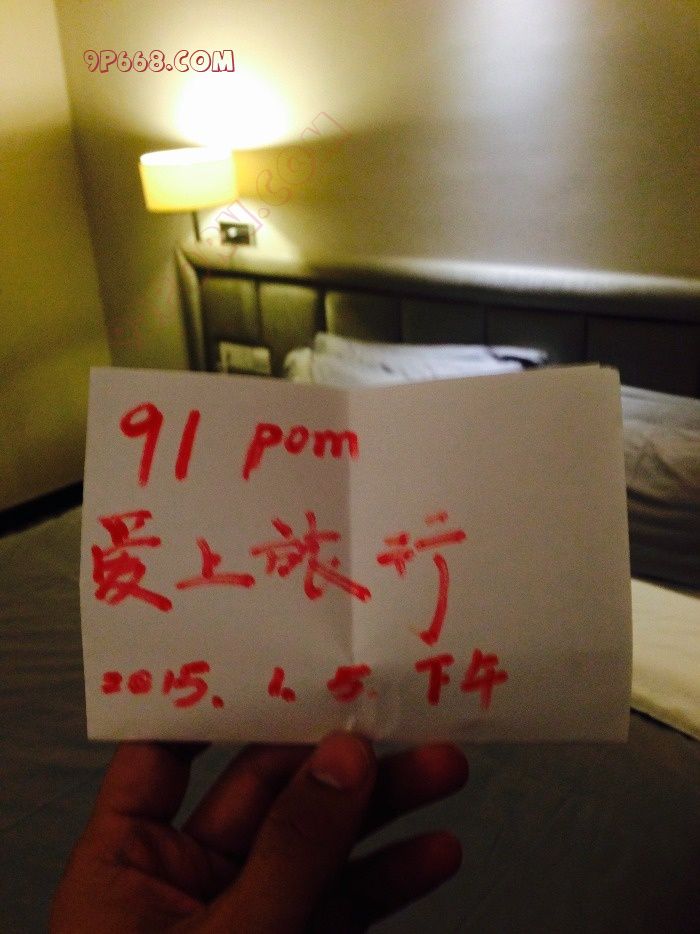 9P668.COM
91 pom
爱上旅行
2015. 1. 5. 下午